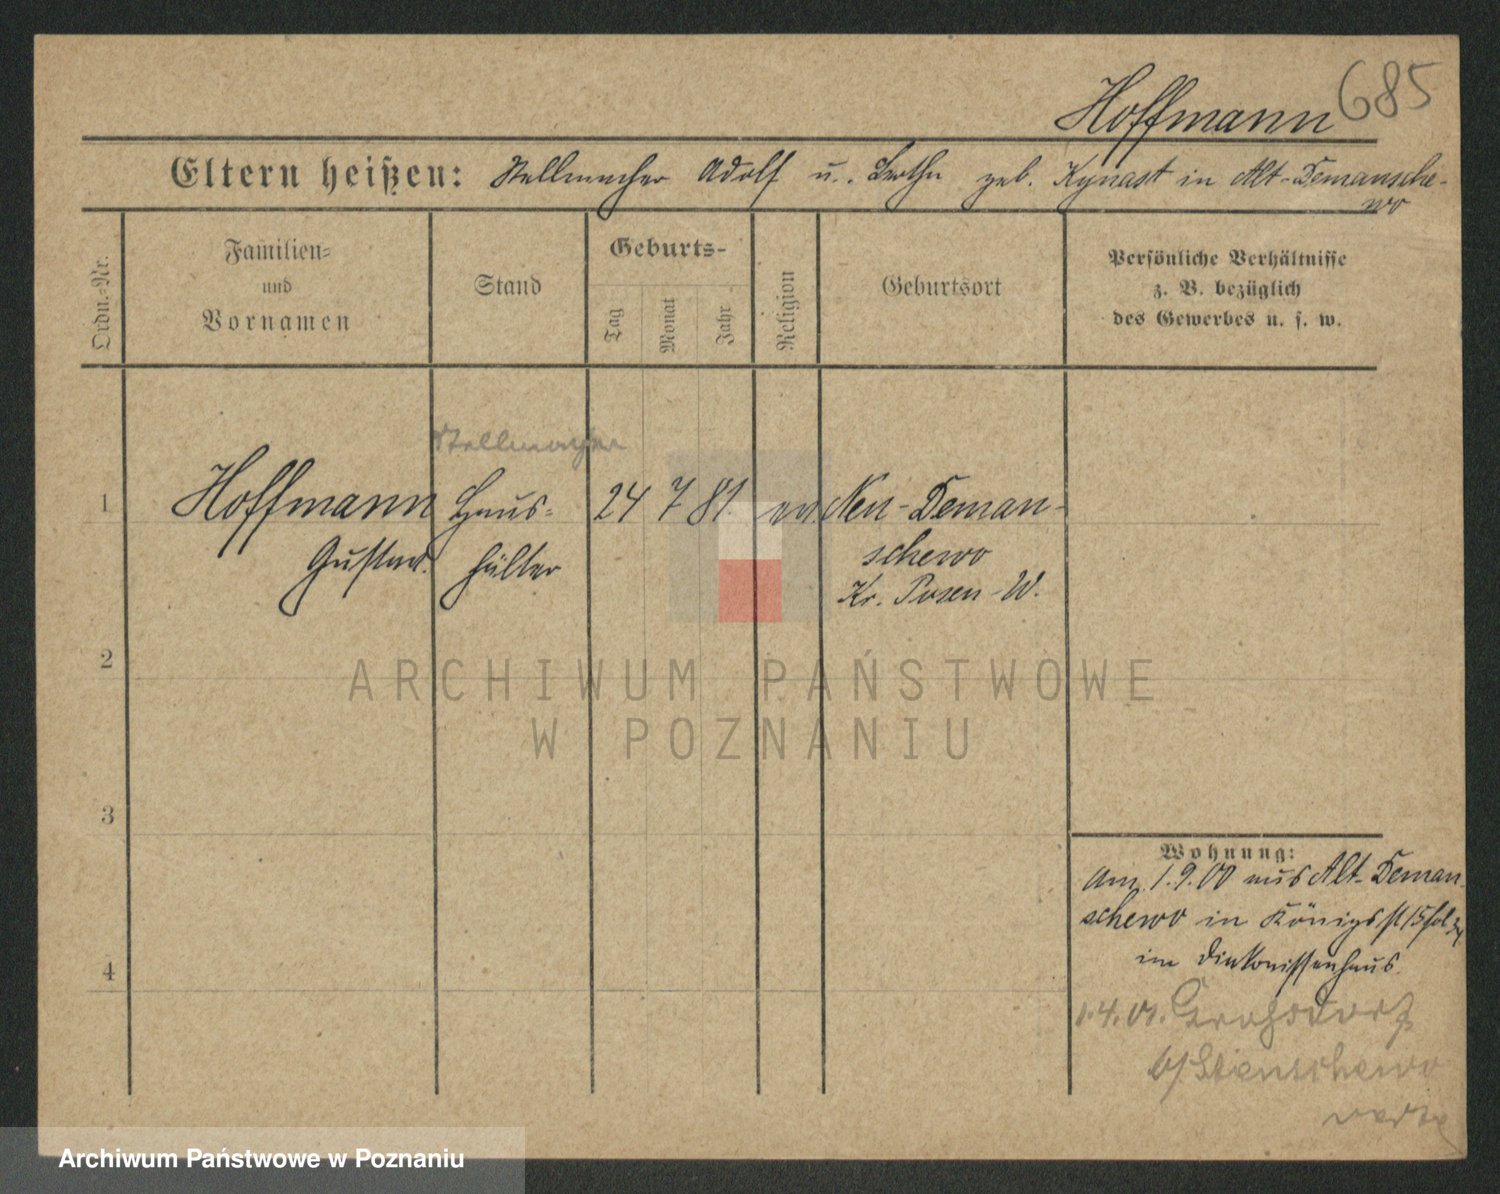 Hoffmann 685
Eltern heißen: Stellmacher Adolf u. Bertha geb. Kynast in Alt-Demansche-
wo
Ordn.-Nr.
Familien-
und
Vornamen
Stand
Geburts-
Tag
Monat
Jahr
Religion
Geburtsort
Persönliche Verhältnisse
z. B. bezüglich
des Gewerbes u. s. w.
Stellmacher
1 Hoffmann Haus- 24 7 81. ev Neu-Deman-
Gustav. hälter schewo
Kr. Posen-W.
2
3
4
Wohnung:
Am 1.9.00 aus Alt-Deman-
schewo in Königsst 15
im Diakonissenhaus.
1.4.01. Großdorf
b/ Stenschewo
ARCHIWUM PAŃSTWOWE
W POZNANIU
Archiwum Państwowe w Poznaniu